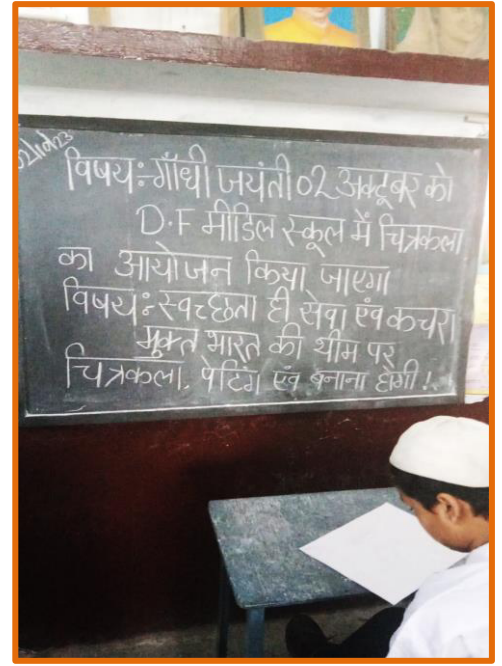 विषय:-गाँधी जयंती 02 अक्टूबर को
D.F मीडिल स्कूल में चित्रकला
का आयोजन किया जाएगा
विषय:- स्वच्छता ही सेवा एंव कचरा
मुक्त भारत की थीम पर
चित्रकला. पेटिंग एंव बनाना होगी!